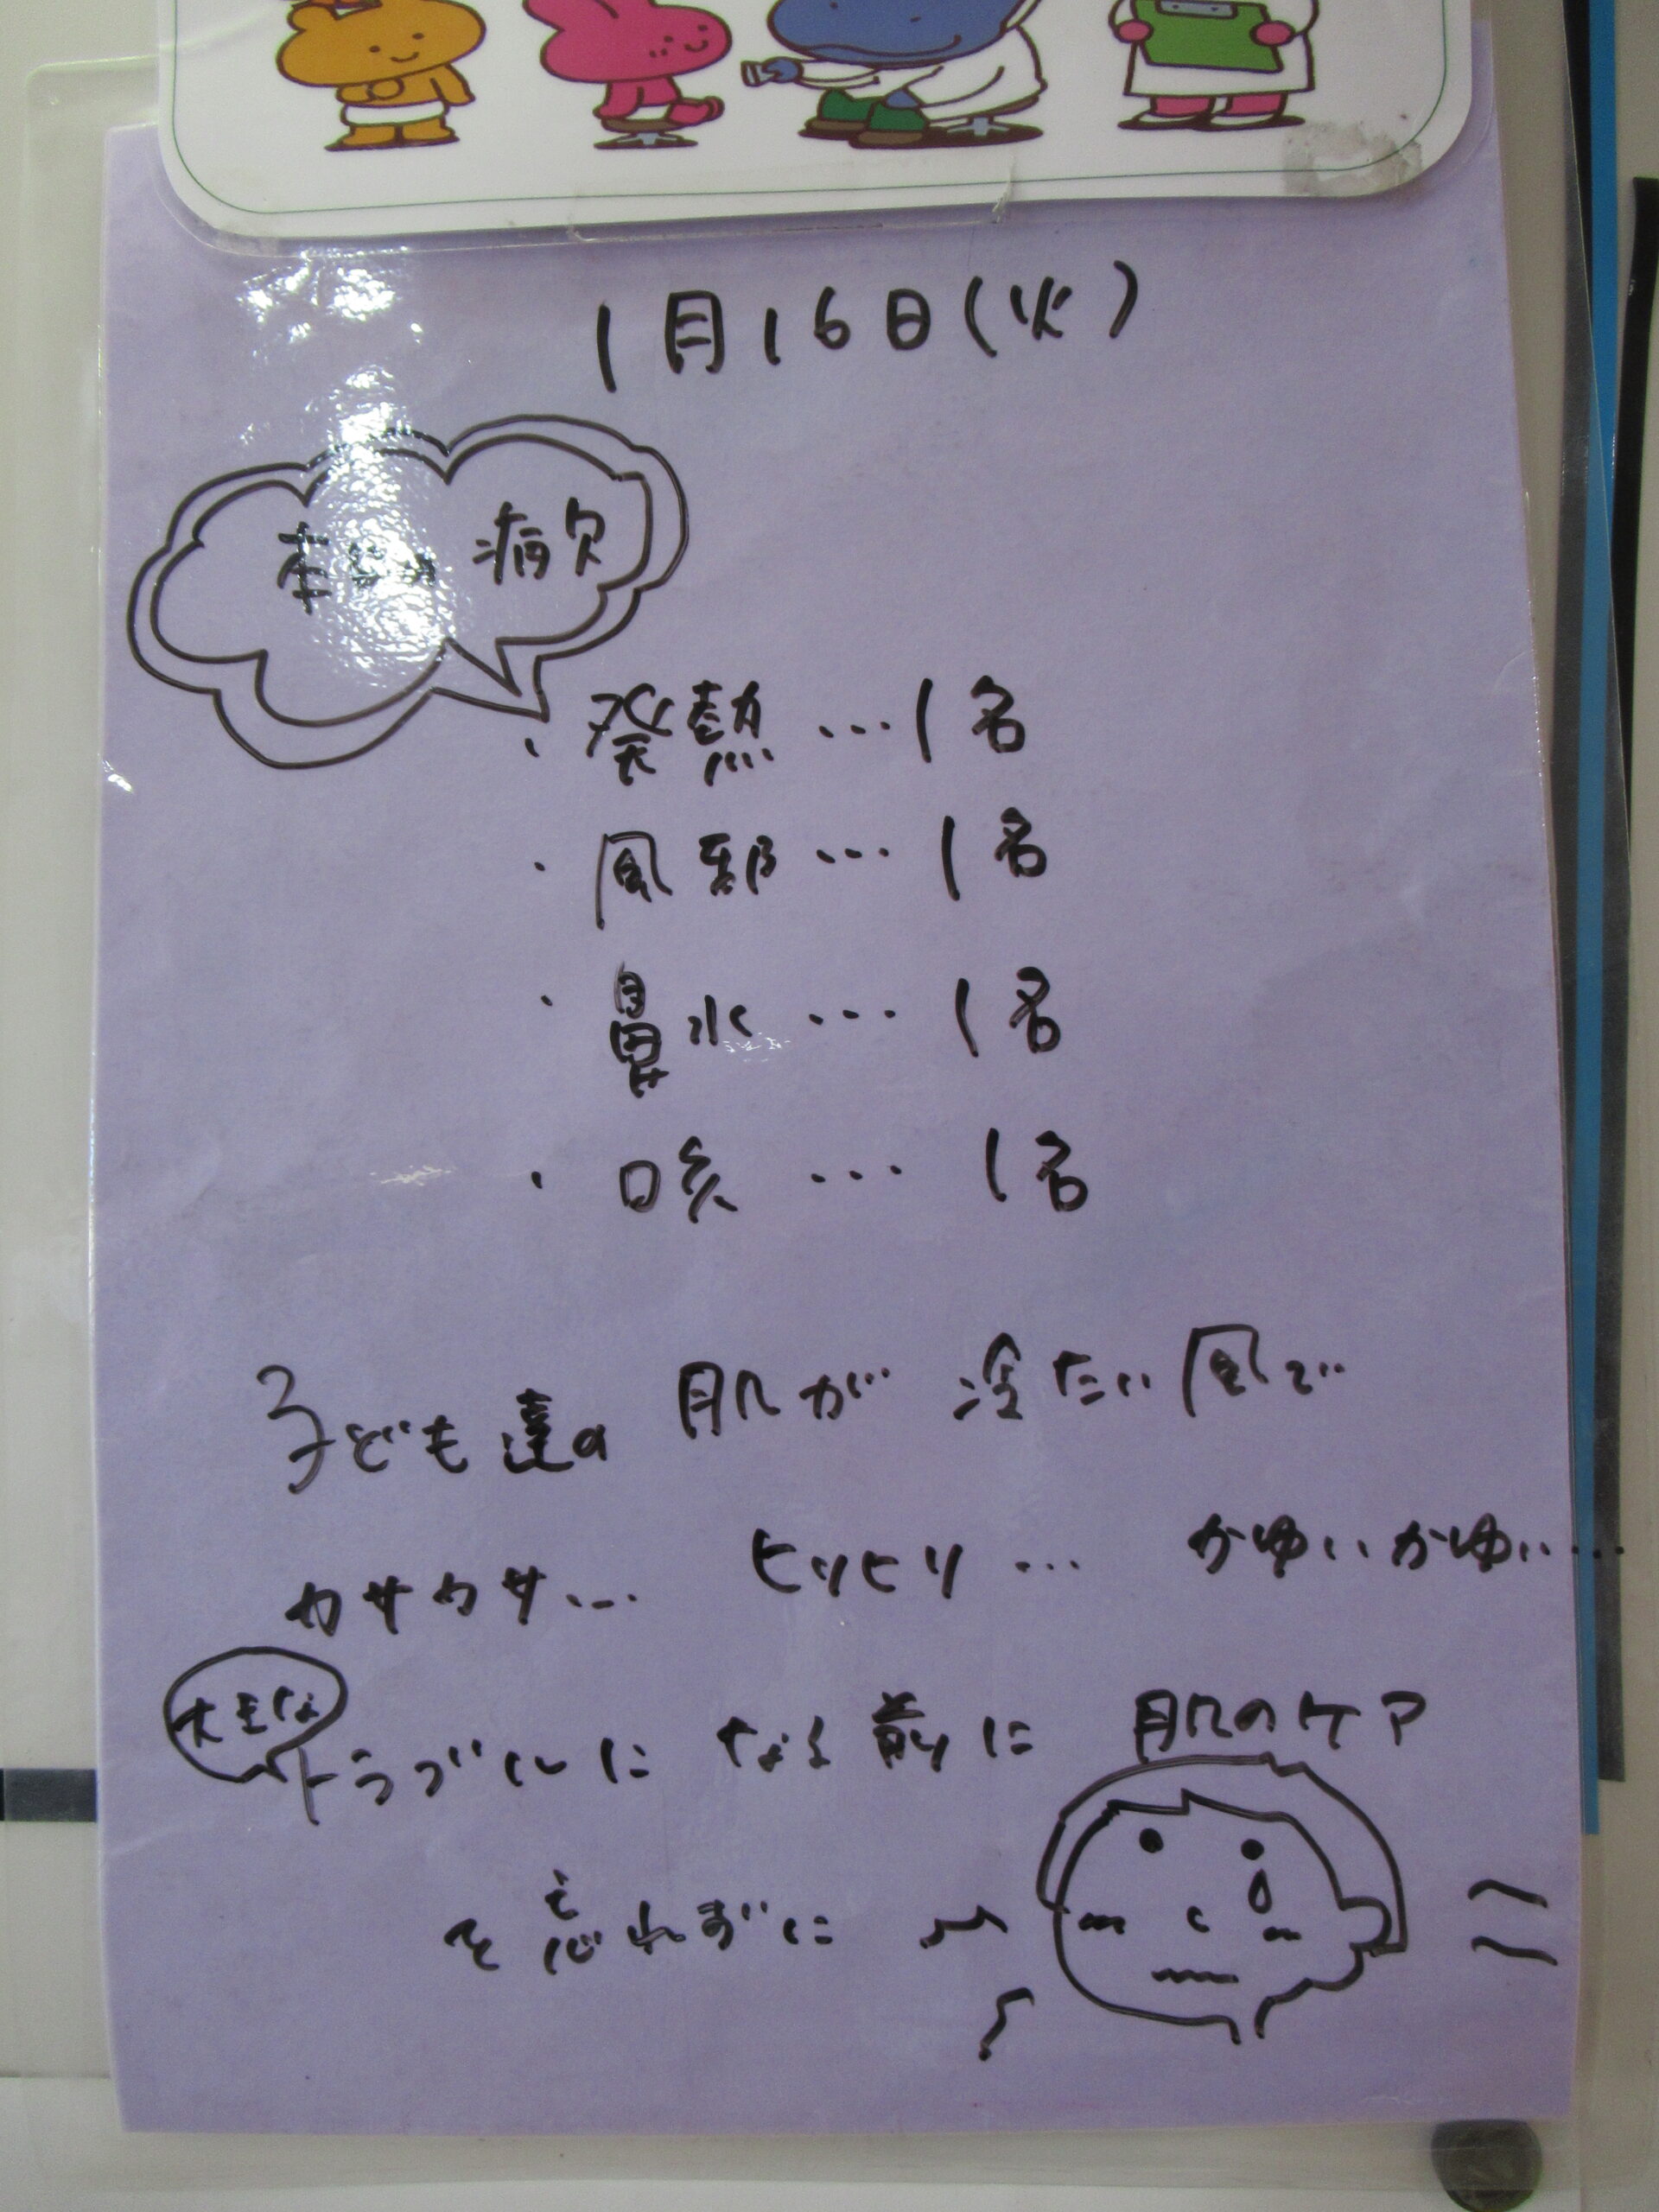 1月16日(火)
本日の病欠
・発熱…1名
・風邪…1名
・鼻水…1名
・咳…1名
子ども達の肌が冷たい風で
カサカサ… ヒリヒリ… かゆいかゆい…
大きな
トラブルになる前に肌のケア
を忘れずに